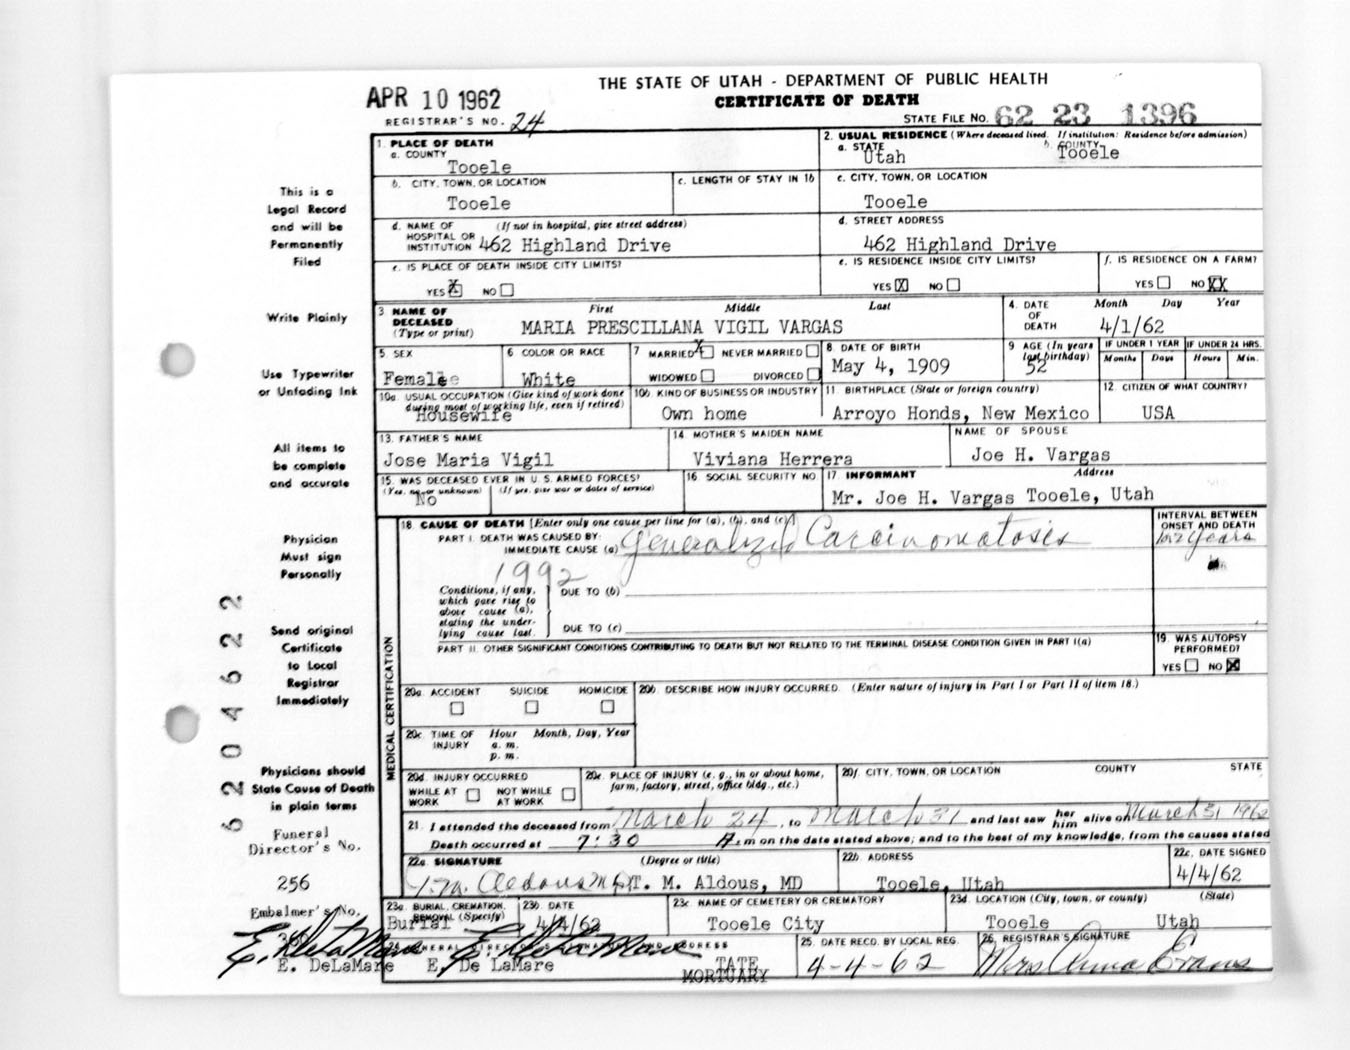 THE STATE OF UTAH - DEPARTMENT OF PUBLIC HEALTH
APR 10 1962
CERTIFICATE OF DEATH
REGISTRAR'S NO. 24
STATE FILE NO. 62 23 1396
1. PLACE OF DEATH
a. COUNTY
Tooele
2. USUAL RESIDENCE (Where deceased lived. If institution: Residence before admission)
a. STATE
Utah
b. COUNTY
Tooele
b. CITY, TOWN, OR LOCATION
Tooele
c. LENGTH OF STAY IN 1b
c. CITY, TOWN, OR LOCATION
Tooele
d. NAME OF HOSPITAL OR INSTITUTION (If not in hospital, give street address)
462 Highland Drive
d. STREET ADDRESS
462 Highland Drive
e. IS PLACE OF DEATH INSIDE CITY LIMITS?
YES X NO
e. IS RESIDENCE INSIDE CITY LIMITS?
YES X NO
f. IS RESIDENCE ON A FARM?
YES NO XX
3. NAME OF DECEASED (Type or print)
First Middle Last
MARIA PRESCILLANA VIGIL VARGAS
4. DATE OF DEATH
Month Day Year
4/1/62
5. SEX
Female
6 COLOR OR RACE
White
7 MARRIED X NEVER MARRIED
WIDOWED DIVORCED
8. DATE OF BIRTH
May 4, 1909
9 AGE (In years last birthday)
52
IF UNDER 1 YEAR
Months Days
IF UNDER 24 HRS.
Hours Min.
10a. USUAL OCCUPATION (Give kind of work done during most of working life, even if retired)
Housewife
10b. KIND OF BUSINESS OR INDUSTRY
Own home
11. BIRTHPLACE (State or foreign country)
Arroyo Honds, New Mexico
12. CITIZEN OF WHAT COUNTRY?
USA
13. FATHER'S NAME
Jose Maria Vigil
14. MOTHER'S MAIDEN NAME
Viviana Herrera
NAME OF SPOUSE
Joe H. Vargas
15. WAS DECEASED EVER IN U. S. ARMED FORCES?
(Yes, no, or unknown) (If yes, give war or dates of service)
No
16 SOCIAL SECURITY NO
17 INFORMANT Address
Mr. Joe H. Vargas Tooele, Utah
MEDICAL CERTIFICATION
18. CAUSE OF DEATH [Enter only one cause per line for (a), (b), and (c)]
PART I. DEATH WAS CAUSED BY:
IMMEDIATE CAUSE (a) Generalized Carcinomatosis
INTERVAL BETWEEN ONSET AND DEATH
1992
Conditions, if any, which gave rise to above cause (a), stating the underlying cause last.
DUE TO (b)
DUE TO (c)
PART II. OTHER SIGNIFICANT CONDITIONS CONTRIBUTING TO DEATH BUT NOT RELATED TO THE TERMINAL DISEASE CONDITION GIVEN IN PART I(a)
19. WAS AUTOPSY PERFORMED?
YES NO X
20a. ACCIDENT SUICIDE HOMICIDE
20b. DESCRIBE HOW INJURY OCCURRED. (Enter nature of injury in Part I or Part II of item 18.)
20c. TIME OF INJURY
Hour Month, Day, Year
a. m.
p. m.
20d. INJURY OCCURRED
WHILE AT WORK NOT WHILE AT WORK
20e. PLACE OF INJURY (e. g., in or about home, farm, factory, street, office bldg., etc.)
20f. CITY, TOWN, OR LOCATION COUNTY STATE
21. I attended the deceased from March 24, to March 31 and last saw her him alive on March 31 1962
Death occurred at 7:30 A. m on the date stated above; and to the best of my knowledge, from the causes stated
22a. SIGNATURE (Degree or title)
T. M. Aldous MD T. M. Aldous, MD
22b. ADDRESS
Tooele, Utah
22c. DATE SIGNED
4/4/62
23a. BURIAL, CREMATION, REMOVAL (Specify)
Burial
23b. DATE
4/4/62
23c. NAME OF CEMETERY OR CREMATORY
Tooele City
23d. LOCATION (City, town, or county) (State)
Tooele Utah
24. FUNERAL DIRECTOR'S SIGNATURE AND ADDRESS
E. DeLaMare E. DeLaMare
E. DeLaMare E. De LaMare TATE MORTUARY
25. DATE RECD. BY LOCAL REG.
4-4-62
26. REGISTRAR'S SIGNATURE
Mrs Anna Evans
This is a
Legal Record
and will be
Permanently
Filed
Write Plainly
Use Typewriter
or Unfading Ink
All items to
be complete
and accurate
Physician
Must sign
Personally
Send original
Certificate
to Local
Registrar
Immediately
Physicians should
State Cause of Death
in plain terms
Funeral
Director's No.
256
Embalmer's No.
62 04622